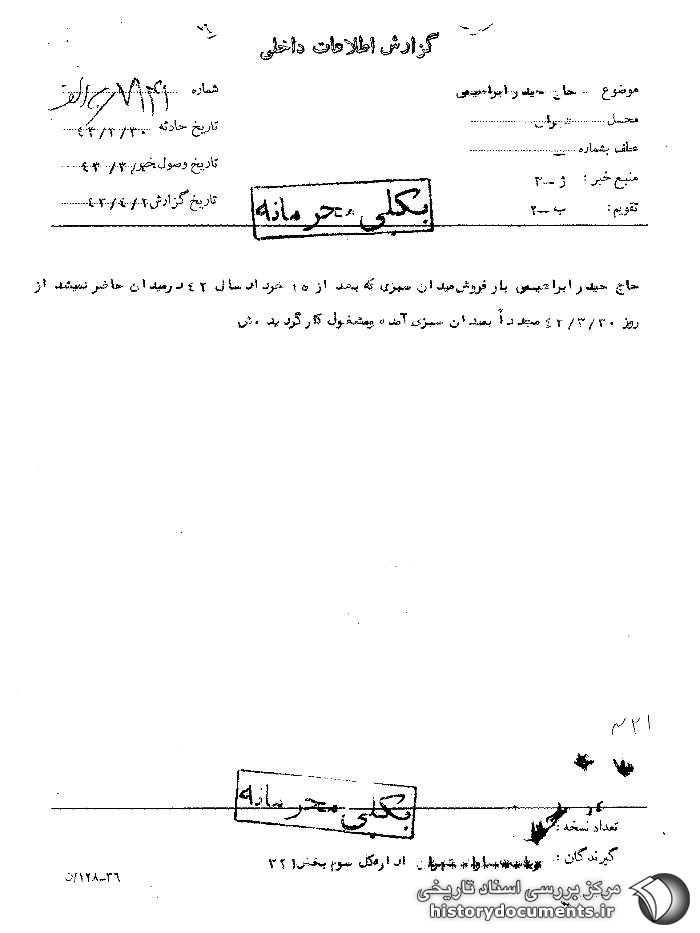 گزارش اطلاعات داخلی
موضوع حاج حیدر ابراهیمی
شماره
محل تهران
تاریخ حادثه ۴۳/۳/۳۰
عطف بشماره
تاریخ وصول خبر
منبع خبر : ژ-۳
تقویم: ب-۲
تاریخ گزارش ۴۳/۴/۲
بکلی محرمانه
حاج حیدر ابراهیمی بار فروش میدان سبزی که بعد از ۱۵ خرداد سال ۴۲ در میدان حاضر نمیشد از
روز ۴۳/۳/۳۰ مجدداً بمیدان سبزی آمده ومشغول کار گردید . ش
۳۲۱
بکلی محرمانه
تعداد نسخه :
گیرندگان : اداره کل سوم بخش ۳۲۱
۳۶-۱۲۸/ن
مرکز بررسی اسناد تاریخی
historydocuments.ir